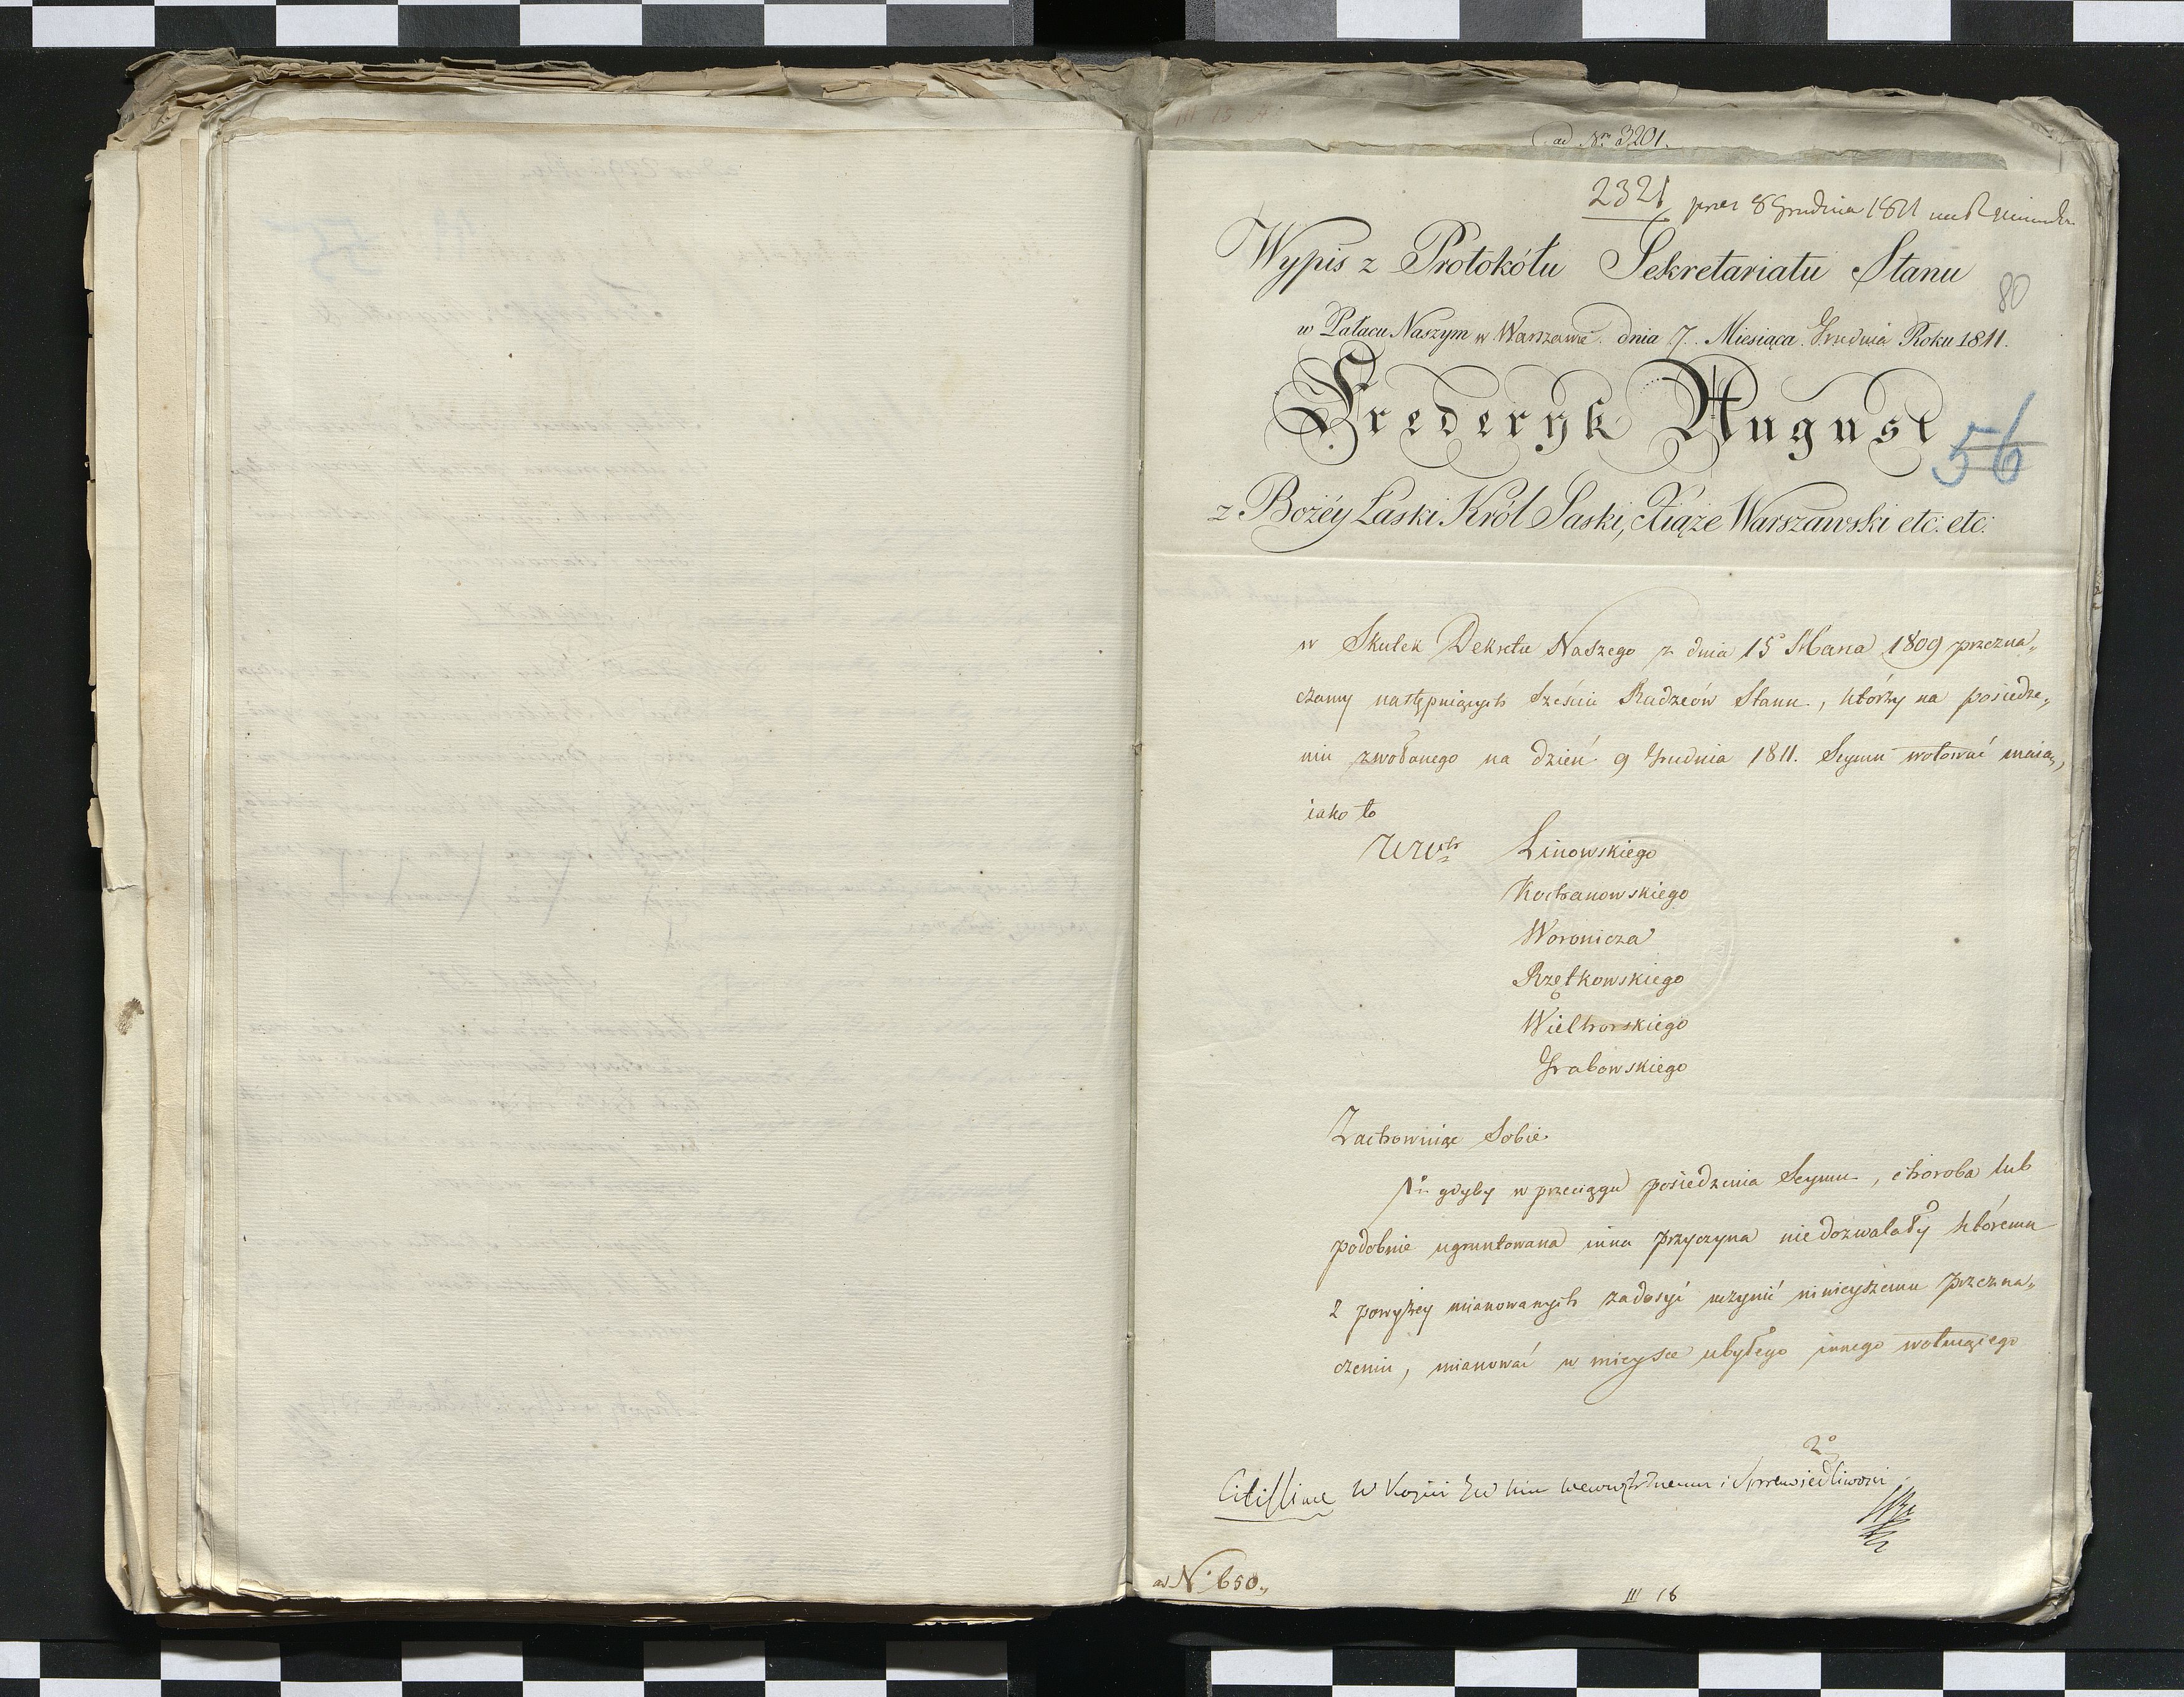 ad Nro 3201.
2321 prez 8 Grudnia 1811
Wypis z Protokółu Sekretariatu Stanu
80
w Pałacu Naszym w Warszawie dnia 7. Miesiąca Grudnia Roku 1811.
Frederyk August
56
z Bożéy Łaski Król Saski, Xiąże Warszawski etc. etc.
w Skutek Dekretu Naszego z dnia 15 Marca 1809 przezna„
czamy następuiących Sześciu Radzców Stanu, którzy na posiedze„
niu zwołanego na dzień 9 Grudnia 1811. Seymu wotować maią,
iako to
Linowskiego
Kochanowskiego
Woronicza
Rzętkowskiego
Wielhorskiego
Grabowskiego
Zachowuiąc Sobie
1o gdyby w przeciągu posiedzenia Seymu, choroba lub
podobnie ugruntowana inna przyczyna niedozwalały któremu
z powyżey mianowanych zadosyć uczynić ninieyszemu przezna„
czeniu, mianować w mieysce ubyłego innego wotuiącego
2o
Citissime W Kopii wewnętrznemu i Sprawiedliwości
ad No 650.
III 18